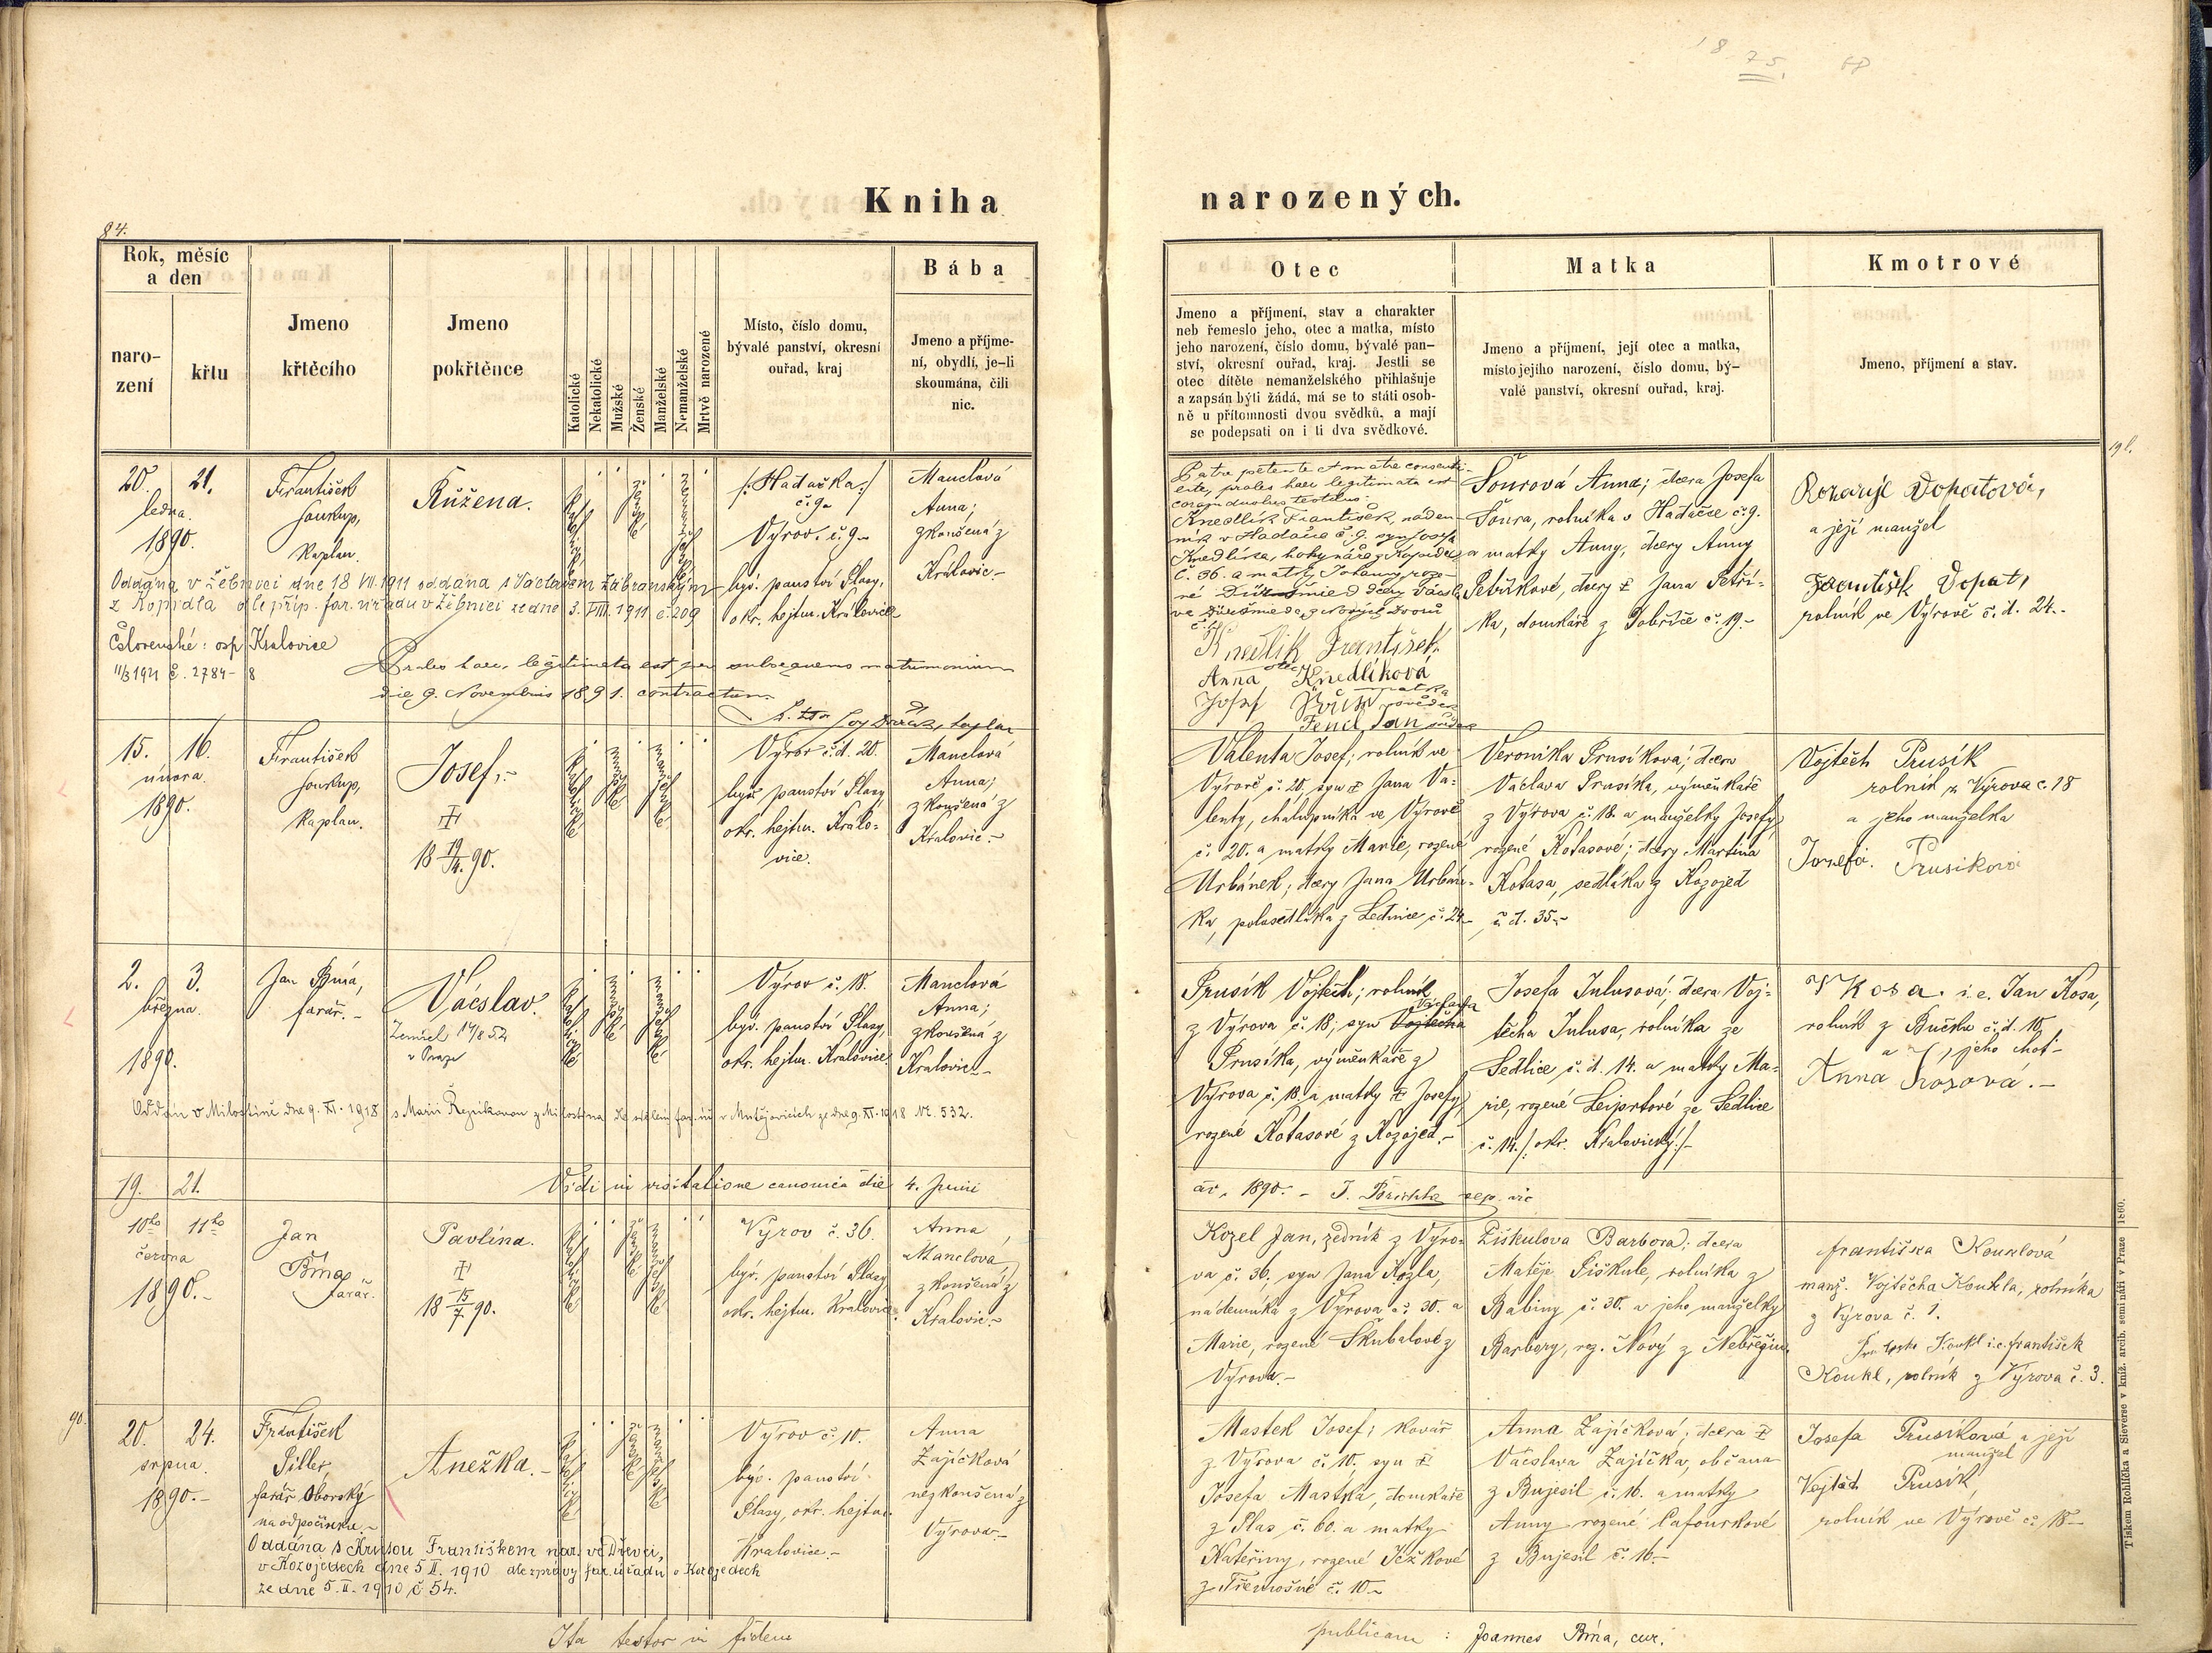 1875.
Kniha
narozených.
84.
Rok, měsíc
a den
naro-
zení
křtu
Jmeno
křtěcího
Jmeno
pokřtěnce
Katolické
Nekatolické
Mužské
Ženské
Manželské
Nemanželské
Mrtvě narozené
Místo, číslo domu,
bývalé panství, okresní
ouřad, kraj
Bába
Jmeno a příjme-
ní, obydlí, je-li
skoumána, čili
nic.
Otec
Jmeno a příjmení, stav a charakter
neb řemeslo jeho, otec a matka, místo
jeho narození, číslo domu, bývalé pan-
ství, okresní ouřad, kraj. Jestli se
otec dítěte nemanželského přihlašuje
a zapsán býti žádá, má se to státi osob-
ně u přítomnosti dvou svědků, a mají
se podepsati on i ti dva svědkové.
Matka
Jmeno a příjmení, její otec a matka,
místo jejího narození, číslo domu, bý-
valé panství, okresní ouřad, kraj.
Kmotrové
Jmeno, příjmení a stav.
20. 21.
ledna.
1890.
František
Soukup,
kaplan.
Růžena.
/:Hadačka:/
č. 9.
Výrov. č. 9.-
býv. panství Plasy,
okr. hejtm. Kralovice
Manclová
Anna;
zkoušená z
Kralovic.-
Oddána v Žebnici dne 18 VII. 1911 oddána s Václavem Zábranským
z Kopidla dle příp. far. úřadu v Žebnici ze dne 3. VIII. 1911 č. 209
Československé: osp Kralovice
11/3 1921 č. 2784-8
Proles haec legitimata est per subsequens matrimonium
die 9. Novembris 1891. contractum.
Patre petente et matre consenti-
ente, proles haec legitimata est
coram duobus testibus:
Knedlík František, náden-
ník v Hadačce č. 9. syn Josefa
Knedlíka, z Kopidla
č. 36. a matky Johanny roze-
né
Knedlik František
otec
Anna Knedlíková
matka
Josef
Fencl Jan
Šourová Anna; dcera Josefa
Šoura, rolníka v Hadačce č. 9.
a matky Anny, dcery Anny
Petřikové, dcery Jana Petří-
ka, domkáře z Dobříče č. 19.-
Rozarije Dopatová,
a její manžel
František Dopat,
rolník ve Výrově č. d. 24.-
15. 16.
února.
1890.
František
Soukup,
kaplan.
Josef.-
18 19/4. 90.
Výrov č. d. 20.
býv. panství Plasy
okr. hejtm. Kralo-
vice.
Manclová
Anna;
zkoušená z
Kralovic.-
Valenta Josef; rolník ve
Výrově č. 20, syn Jana Va-
lenty, chalupníka ve Výrově
č. 20. a matky Marie, rozené
Urbánek, dcery Jana Urbán-
ka, polosedláka z Lednice č. 24.-
Veronika Prusíková; dcera
Václava Prusíka, výměnkáře
z Výrova č. 18. a manželky Josefy
rozené Kotasové; dcery Martina
Kotasa, sedláka z Kozojed
č. d. 35.-
Vojtěch Prusík
rolník z Výrova č. 18
a jeho manželka
Josefa. Prusikova
2. 3.
března.
1890.
Jan Brna,
farář.-
Václav.
Zemřel 14/8 52
v Praze
Výrov č. 18.
býv. panství Plasy,
okr. hejtm. Kralovice.
Manclová
Anna;
zkoušená z
Kralovic.-
Oddán v Milostíně dne 9. XI. 1918 s Marií Řezníkovou z Milostína dle sdělení far. úř. v Mutějovicích ze dne 9. XI. 1918 Nr. 532.
Prusík Vojtěch; rolník
z Výrova č. 18, syn Vojtěcha Václava
Prusíka, výměnkáře z
Výrova č. 18. a matky Josefy,
rozené Kotasové z Kozojed.-
Josefa Tulusová: dcera Voj-
těcha Tulusa, rolníka ze
Sedlice č. d. 14. a matky Ma-
rie, rozené Leiprtové ze Sedlice
č. 14. /: okr. Kralovický:/-
Kosa. i. e. Jan Kosa,
rolník z Bučku č. d. 10.
a jeho choť
Anna Kosová.-
19. 21.
Vidi in visitatione canonica die 4. Junii
1890. - J.
10ho 11ho
června
1890.-
Jan
Brna
farář.
Pavlína.
18 15/7. 90.
Výrov č. 36.
býv. panství Plasy
okr. hejtm. Kralovice.
Anna
Manclová,
zkoušená z
Kralovic.-
Kozel Jan, zedník z Výro-
va č. 36. syn Jana Kozla,
nádeníka z Výrova č. 30. a
Marie, rozené Škubalové z
Výrova.-
Žiškulova Barbora; dcera
Matěje Žiškule, rolníka z
Babiny č. 30. a jeho manželky
Barbory, roz. Nový z Nebřezin
Františka Kouklová
manž. Vojtěcha Koukla, rolníka
z Výrova č. 1.
Koukl i. e. František
Koukl, rolník z Výrova č. 3.
90.
20. 24.
srpna.
1890.-
František
Siller
farář Oborský
na odpočinku.-
Anežka.-
Výrov č. 10.
býv. panství
Plasy, okr. hejtm.
Kralovice.-
Anna
Zajíčková
nezkoušená z
Výrova.-
Oddána s Františkem nar. ve Dřevci,
v Kozojedech dne 5 II. 1910 dle zprávy far. úřadu v Kozojedech
ze dne 5. II. 1910 č. 54.
Mastek Josef; kovář
z Výrova č. 10. syn
Josefa Mastka, domkáře
z Plas č. 60. a matky
Kateřiny, rozené Ježkové
z Třemošné č. 10.-
Anna Zajíčková; dcera
Václava Zajíčka, občana
z Bujesil č. 16. a matky
Anny rozené Cafourkové
z Bujesil č. 16.-
Josefa Prusiková a její
manžel
Vojtěch Prusík,
rolník ve Výrově č. 18.-
Ita testor in fidem
publicam: Joannes Brna, cur.
Tiskem Rohlíčka a Sieverse v kníž. arcib. semináři v Praze 1860.